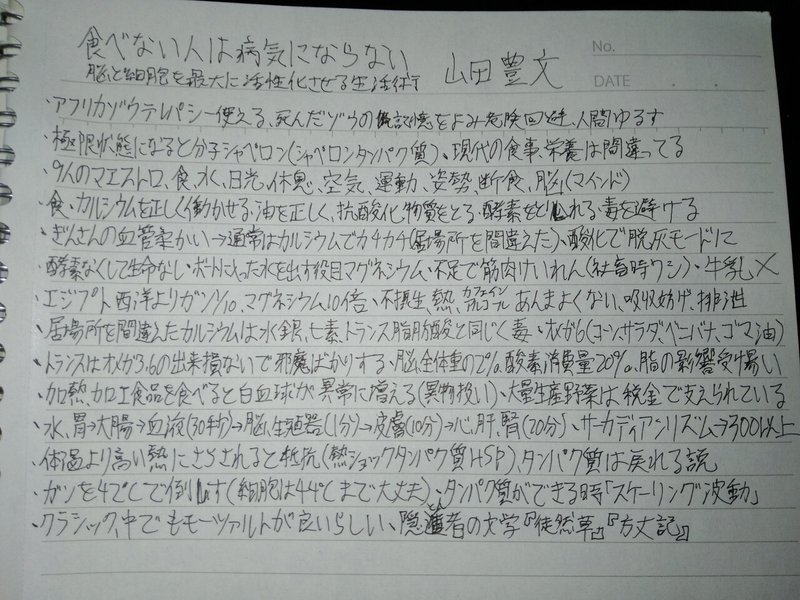 食べない人は病気にならない 山田豊文
脳と細胞を最大に活性化させる生活術
No.
DATE . .
・アフリカゾウテレパシー使える、死んだゾウの記憶をよみ危険回避、人間ゆるす
・極限状態になると分子シャペロン(シャペロンタンパク質)、現代の食事、栄養は間違ってる
・9人のマエストロ、食、水、日光、休息、空気、運動、姿勢、断食、脳(マインド)
・食、カルシウムを正しく働かせる、油を正しく、抗酸化物質をとる、酵素をとり入れる、毒を避ける
・ぎんさんの血管柔かい→通常はカルシウムでカチカチ(居場所を間違えた)、酸化で脱灰モードに
・酵素なくして生命なし・ボートに入った水を出す役目マグネシウム・不足で筋肉けいれん(社畜時ワシ)・牛乳×
・エジプト西洋よりガン1/10、マグネシウム10倍・不摂生、熱、カフェインアルコールあんまよくない、吸収妨げ、排泄
・居場所を間違えたカルシウムは水銀、ヒ素、トランス脂肪酸と同じく毒・オメガ6(コーン、サラダ、ベニバナ、ゴマ油)
・トランスはオメガ3,6の出来損ないで邪魔ばかりする・脳、全体重の2%、酸素消費量20%、脂の影響受け易い
・加熱、加工食品を食べると白血球が異常に増える(異物扱い)・大量生産野菜は税金で支えられている
・水、胃→大腸→血液(30秒)→脳、生殖器(1分)→皮膚(10分)→心、肝、腎(20分)・サーカディアンリズム→300以上
・体温より高い熱にさらされると抵抗(熱ショックタンパク質HSP)、タンパク質は戻れる説
・ガンを42℃で倒す(細胞は44℃まで大丈夫)・タンパク質ができる時「スケーリング波動」
・クラシック、中でもモーツァルトが良いらしい、隠遁者の文学『徒然草』『方丈記』